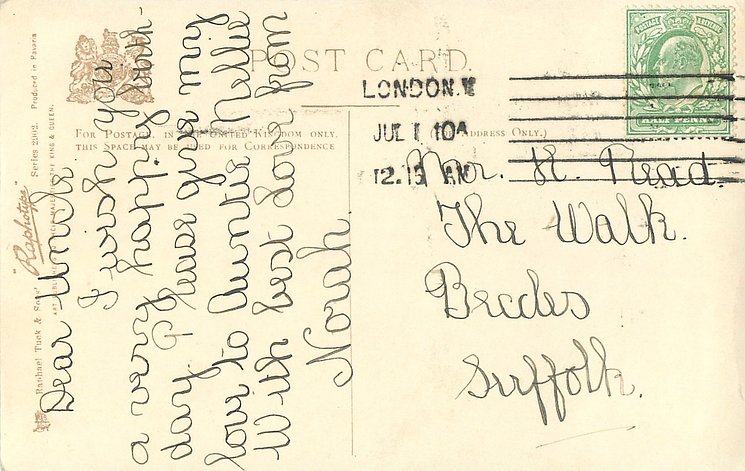 POST CARD
FOR POSTAGE IN THE UNITED KINGDOM ONLY.
THIS SPACE MAY BE USED FOR CORRESPONDENCE
(ADDRESS ONLY.)
POSTAGE REVENUE
HALF PENNY
LONDON.W
JUL 1 10
12.15 AM
Mr. H. Read.
The Walk.
Beccles
Suffolk.
Dear Uncle
I wish you
a very happy birth-
day Please give my
love to Auntie Nellie
With best love from
Norah.
Raphael Tuck & Sons'
"Raphotype"
Series 2002. Produced in Bavaria
ART PUBLISHERS TO THEIR MAJESTIES THE KING & QUEEN.